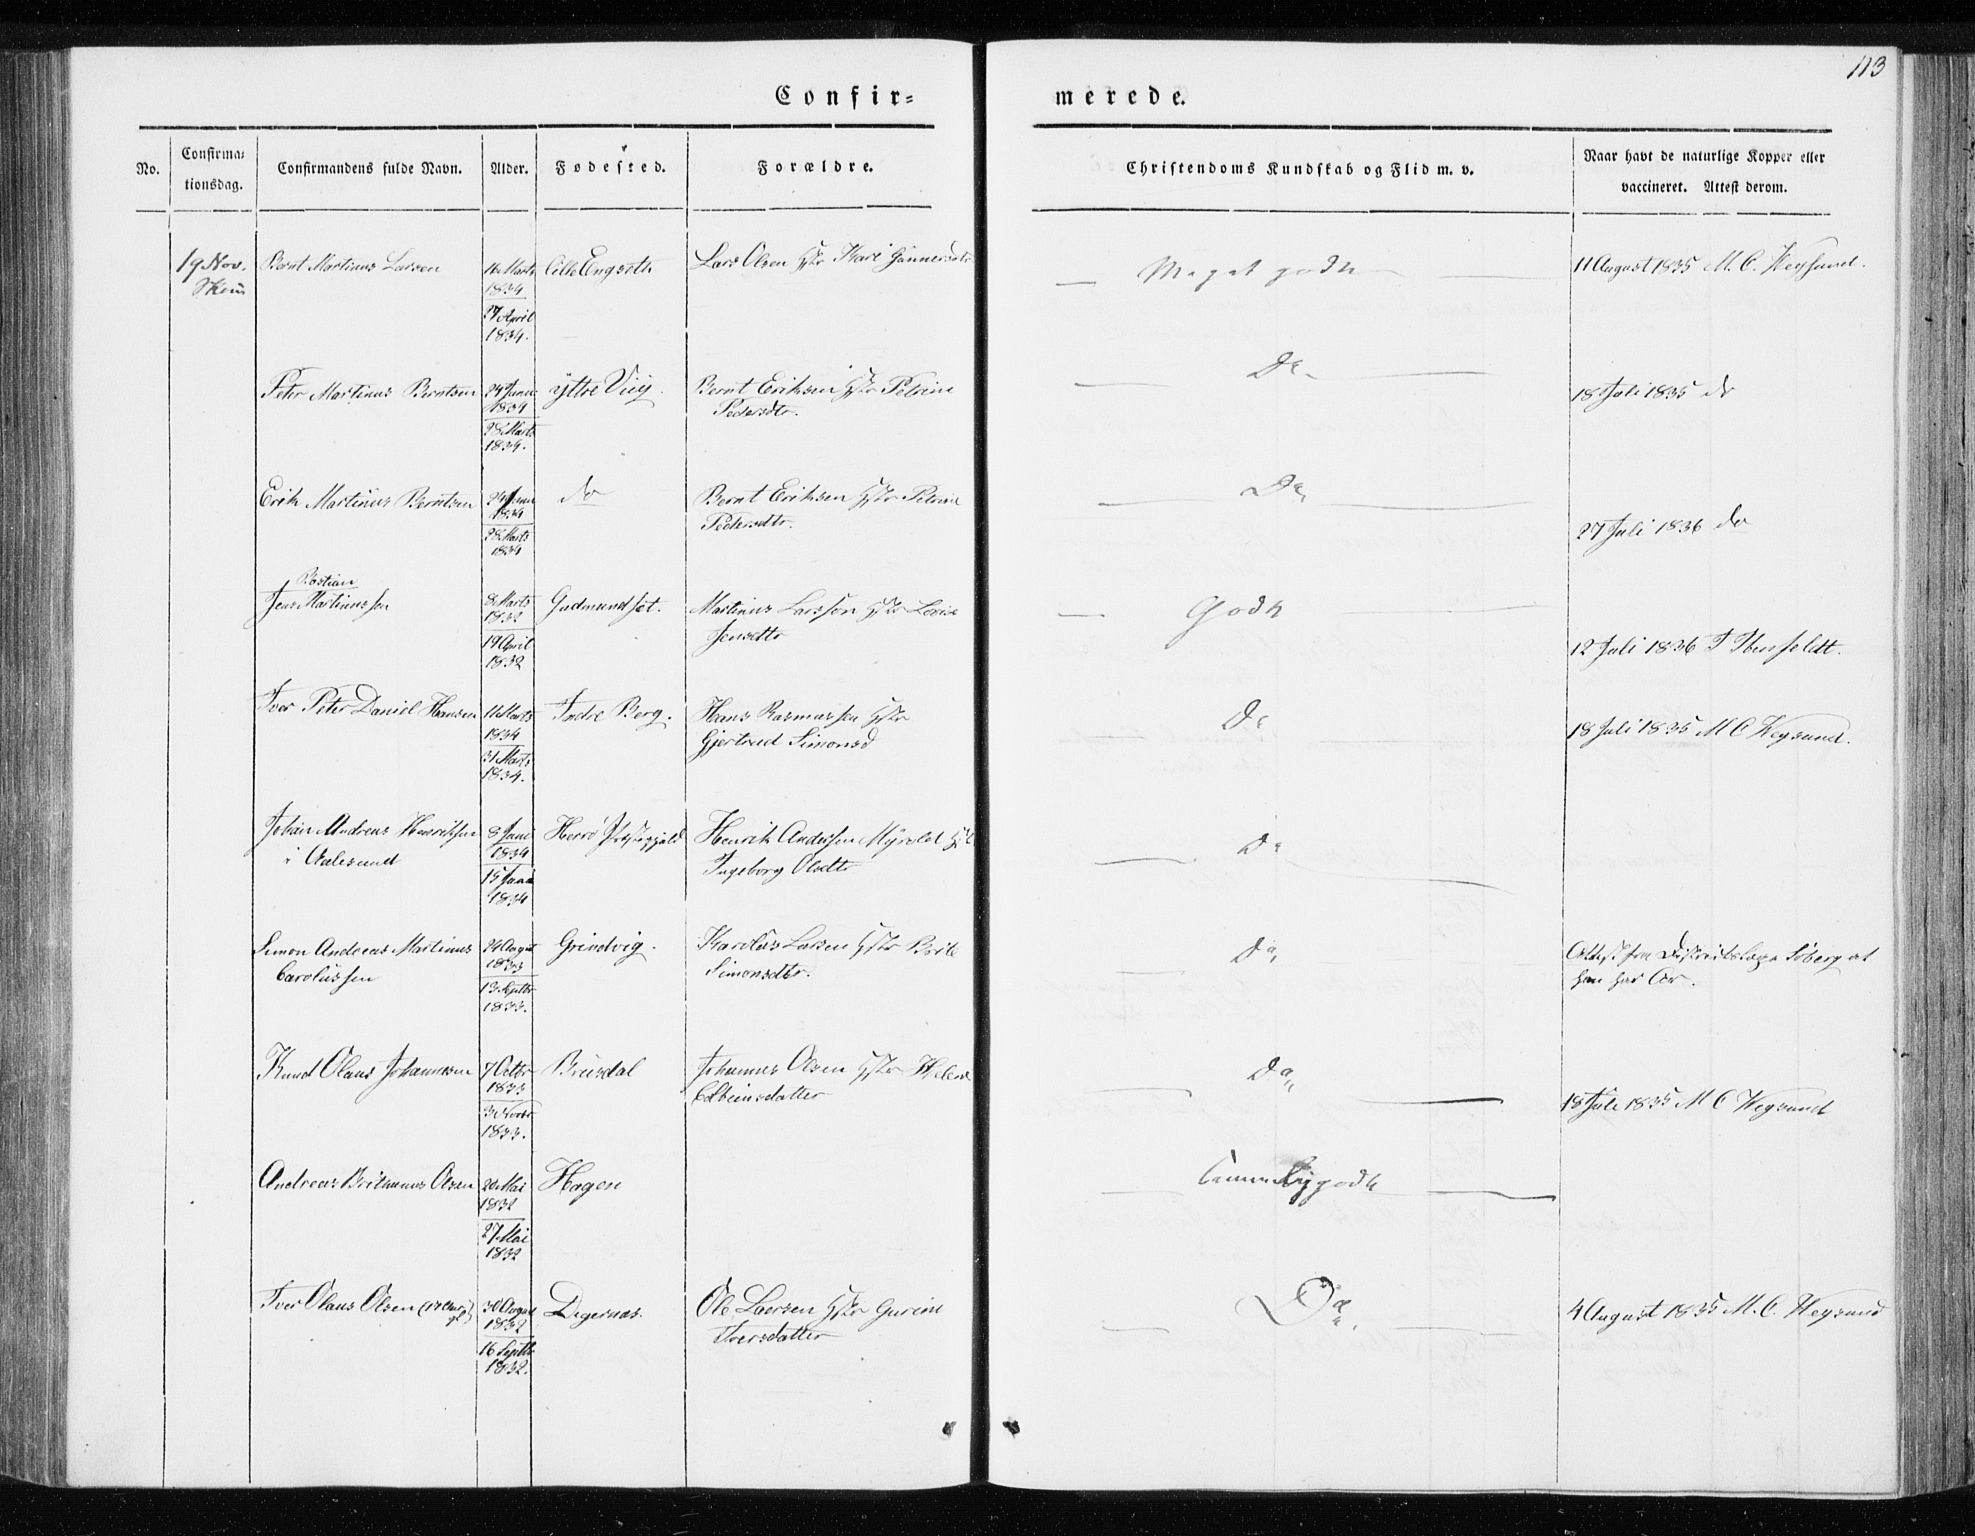 113
Confir=
merede.
No.
Confirma=
tionsdag.
Confirmandens fulde Navn.
Alder.
Fødested.
Forældre.
Christendoms Kundskab og Flid m. v.
Naar havt de naturlige Kopper eller
vaccineret. Attest derom.
19 Nov.
Bernt Martinus Larsen
Marts
1834
27 April
1834.
Lille Engseth
Lars Olsen Hstr Kari Gunnersdtr
Meget godk
11 August 1835 M. C. Weysund.
Peter Martinus Berntsen
24 Janu
1834
28 Marts
1834.
ÿttre Viig.
Bernt Eriksen Hstr Petrine
Pedersdtr.
Do
18 Juli 1835 do
Erik Martinus Berntsen
24 Janu
1834
28 Marts
1834
do
Bernt Eriksen Hstr Petrine
Pedersdtr.
Do
27 Juli 1836 do
Bastian
Jens Martinussen
8 Marts
1832
19 April
1832
Gudmundset.
Martinus Larsson Hstr Lovise
Jensdtr
Godk
12 Juli 1836
Iver Peter Daniel Hansen
11 Marts
1834
31 Marts
1834.
Indre Berg.
Hans Rasmussen Hstr
Gjertrud Simonsd
Do
18 Juli 1835 M C Weysund.
Johan Andreas Henriksen
i Aalesund
8 Juni
1834
15 Juni
1834
Herrö Præstegjeld
Henrik Andersen Myrvlet
Ingeborg Olsdtr
Do
Simon Andreas Martinus
Carolussen
24 August
1833
13 Septbr
1833.
Grindvig.
Karolus Larsen Hstr Brite
Simonsdtr.
Do
Attest fra Districtslæge Söberg at
han har Ar.
Knud Olaus Johannesen
7 Octbr
1833
3 Novbr
1833.
Brusdal
Johannes Olsen Hstr Helene
Colbeinsdatter
Do
18 Juli 1835 M C Weysund
Andreas Olsen
20 Mai
1832
27 Mai
1832
Hagen
Temmelig godk
Iver Olaus Olsen
30 August
1832
16 Septbr
1832.
Degernæs.
Ole Larsen Hstr Gurine
Iversdatter
Do
4 August 1835 M. C. Weysund